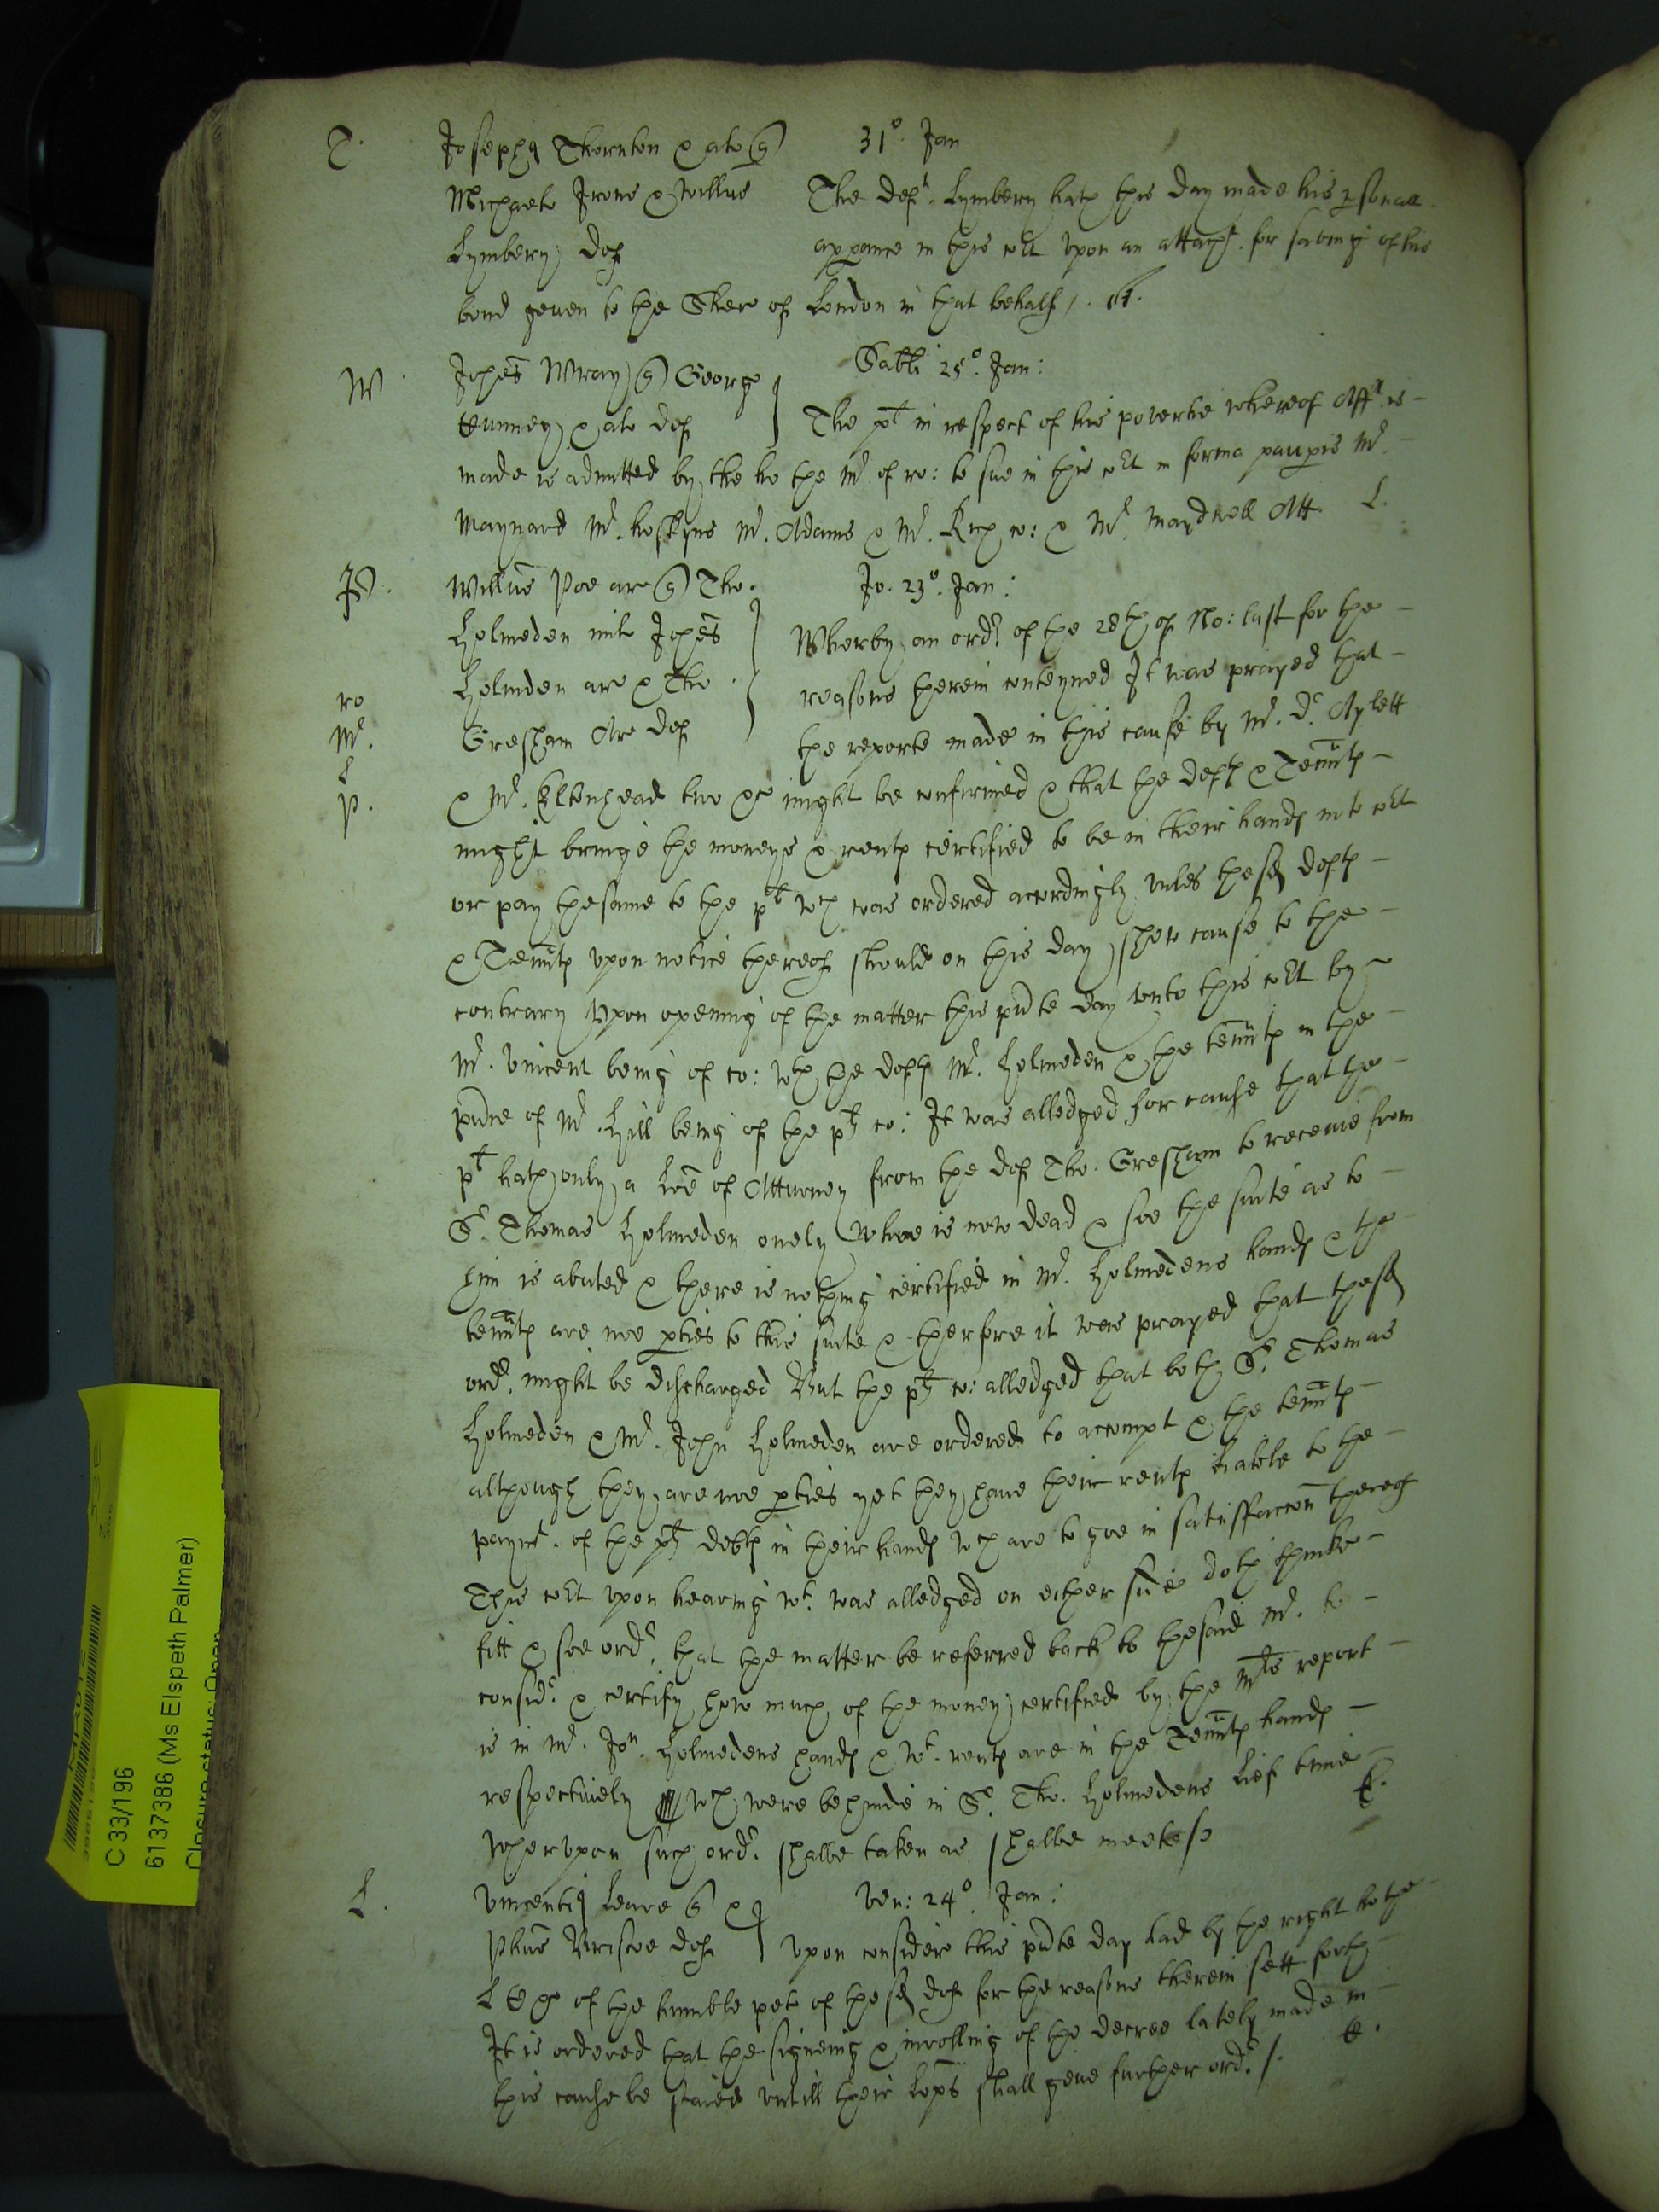 T. Josephus Thornton & al q 31o. Jan
Michaele Irons & Willus The deft. Lymbery hath this day made his psonall
Lymbery def appance in this Cort upon an attachmt. for saveing of his
bond geven to the Shere of London in that behalf /.
W Johes Wray q George Sabti 25o. Jan:
& als def The plt in respect of his povertie whereof Afft. is
made is admitted by the ho the Mr. of ro: to sue in this Cort in forma paupis Mr.
Maynard Mr. hoskyns Mr. Adams & Mr. Rich co: & Mr. Maydwell Att. L.
P. Willus Poe ar q Tho. Jo. 23o. Jan:
Holmeden milt Johes Wherby an ordr. of the 28th of No: last for the
ro Holmden ar & Tho. reasons therein conteyned It was prayed that
Mr. Gresham Ar def the reporte made in this cause by Mr. Dr. Aylett
L
P. & Mr. Eltonhead two &c might be confirmed & that the defts & Tennts
might bringe the moneys & rents certified to be in their hands into cort
or pay the same to the plt wch was ordered accordingly unles the sd defts
& Tennts upon notice thereof should on this day shew cause to the
contrary Upon opening of the matter this pnte day unto this cort by
Mr. Vincent being of co: wth the defts Mr. Holmeden & the tennts in the
pnce of Mr. Hill being of the plts co: It was alledged for cause that the
plt hath only a Lre of Atturney from the def Tho. Gresham to receive from
Sr. Thomas Holmeden onely whoe is now dead & soe the suite as to
him is abated & there is nothing certified in Mr. Holmedens hands & the
tennts are noe pties to this suite & therfore it was prayed that the sd
ordr. might be discharged But the plts co: alledged that both Sr. Thomas
Holmeden & Mr. John Holmeden are ordered to accompt & the tennts
although they are noe pties yet they have their rents liable to the
paymt. of the plts debts in their hands wch are to goe in satisfaccon thereof
This cort upon hearing wt. was alledged on either side doth thinke
fitt & soe ordr. that the matter be referred back to the said Mr. to
considr. & certify how much of the money certified by the Mrs report
is in Mr. Jon. Holmedens hands & wt. rents are in the Tennts hands
respectively wch were behinde in Sr. Tho. Holmedens lief time
wherupon such ordr. shalbe taken as shalbe meete /. E.
L. Vincentius Leare q & Ven: 24o. Jan:
Phus Briscoe def Upon consideron this pnte day had by the right ho the
L Co of the humble peto of the sd def for the reasons therein sett forth
It is ordered that the signeing & inrolling of the decree lately made in
this cause be staied untill their Lopps shall geve further ordr. /.
C 33/196
6137386 (Ms Elspeth Palmer)
Closure status: Open